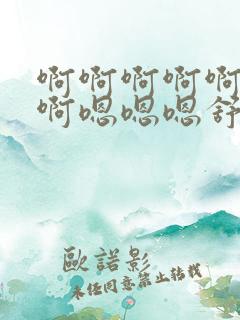 啊啊啊啊啊
啊嗯嗯嗯舒
歐諾影
未经同意禁止转载